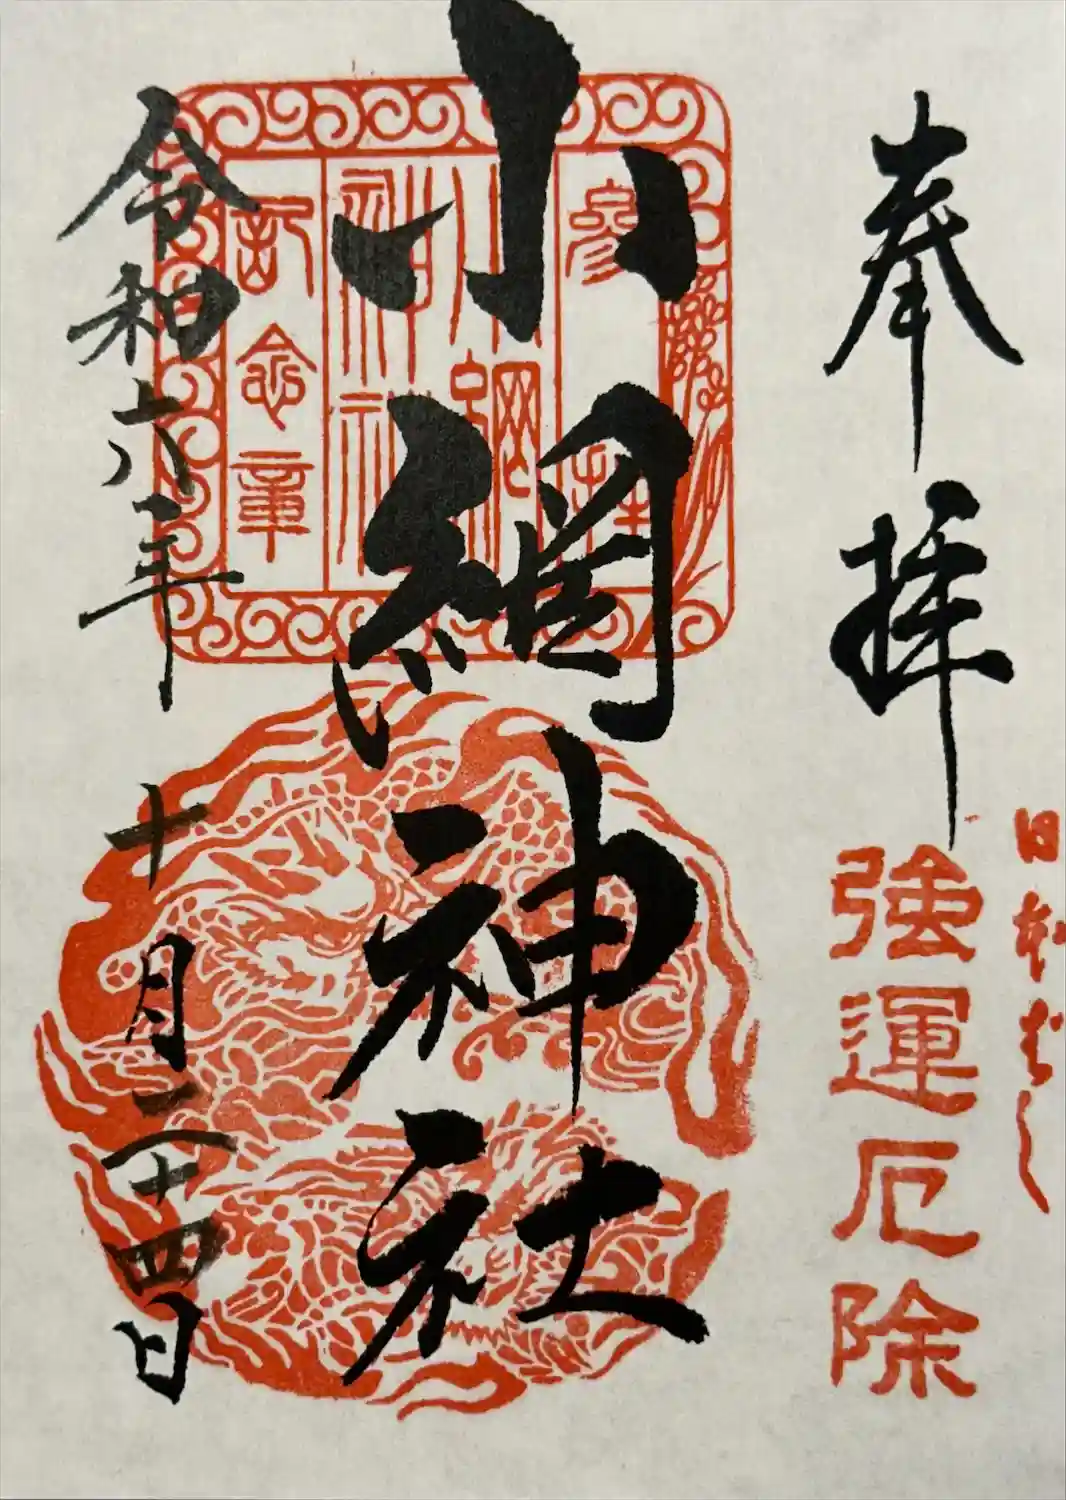 日本ばし
奉拝
強運厄除
小網神社
参拝
小網
神社
記念章
令和六年十月二十四日